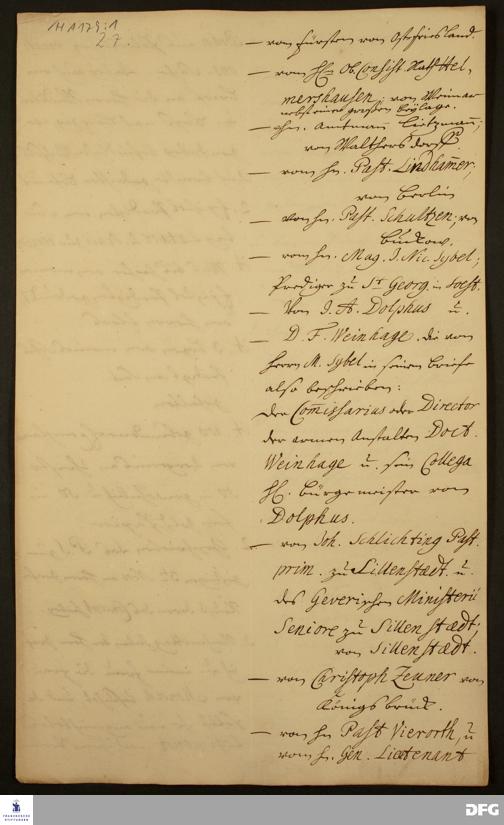 H A 179:1
27.
— vom Fürsten von Ostfriesland.
— vom H. Ob. Consist. Rath Hel,
mershausen, von Weimar
nebst einer großen Beylage.
— Hn. Amtmann Lützmann;
von Walthersdorff.
— vom Hn. Past. Lindhamer,
von Berlin
— von Hn. Past. Schultzen, von
Buckow.
— vom Hn. Mag. J. Nic. Sybel;
Prediger zu St. Georg. in Soest.
— Von J. A. Dolphus u.
— D. F. Weinhage. die vom
Herrn M. Sybel in seinen Briefe
also beschrieben:
Der Com̅issarius oder Director
der armen Anstalten Doct.
Weinhage u. sein Collega
H. Bürgemeister von
Dolphus.
— von Joh. Schlichting Past.
prim. zu Sillenstædt. u.
des Geverischen Ministerii
Seniore zu Sillenstædt;
von Sillenstædt.
— von Christoph Zeuner von
Königsbrück.
— von Hn Past Vierorth, u
vom Hn. Gen. Lieutenant
FRANCKESCHE
STIFTUNGEN
DFG